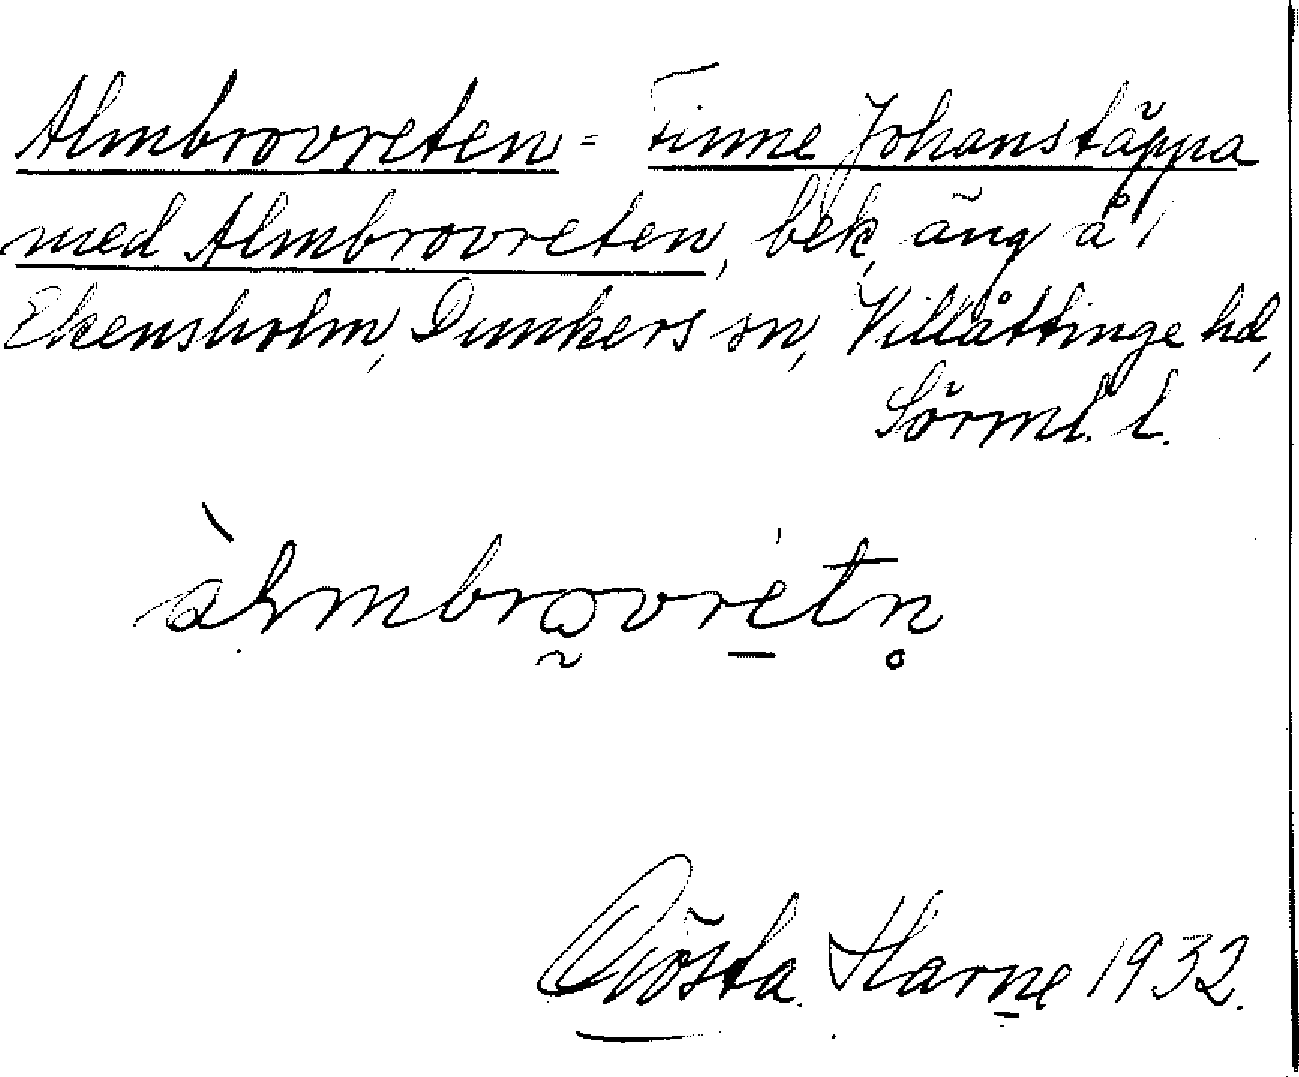 Almbrovreten = Finne Johanstäppa
med Almbrovreten, bek, äng å
Ekensholm, Dunkers sn, Villåttinge hd,
Sörml. l.
àlmbrωvrétn̥
Gösta Harne 1932.